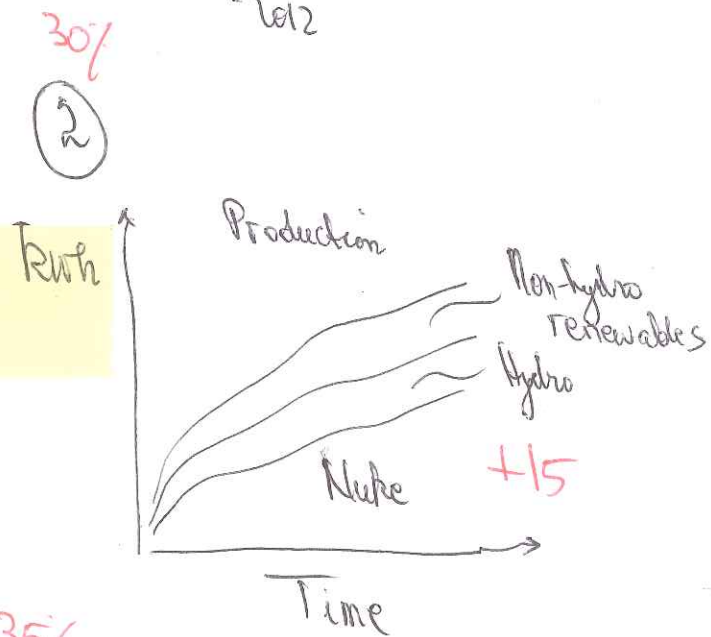 2012
30%
2
kwh
Production
Non-hydro
renewables
Hydro
Nuke
+15
Time
35%